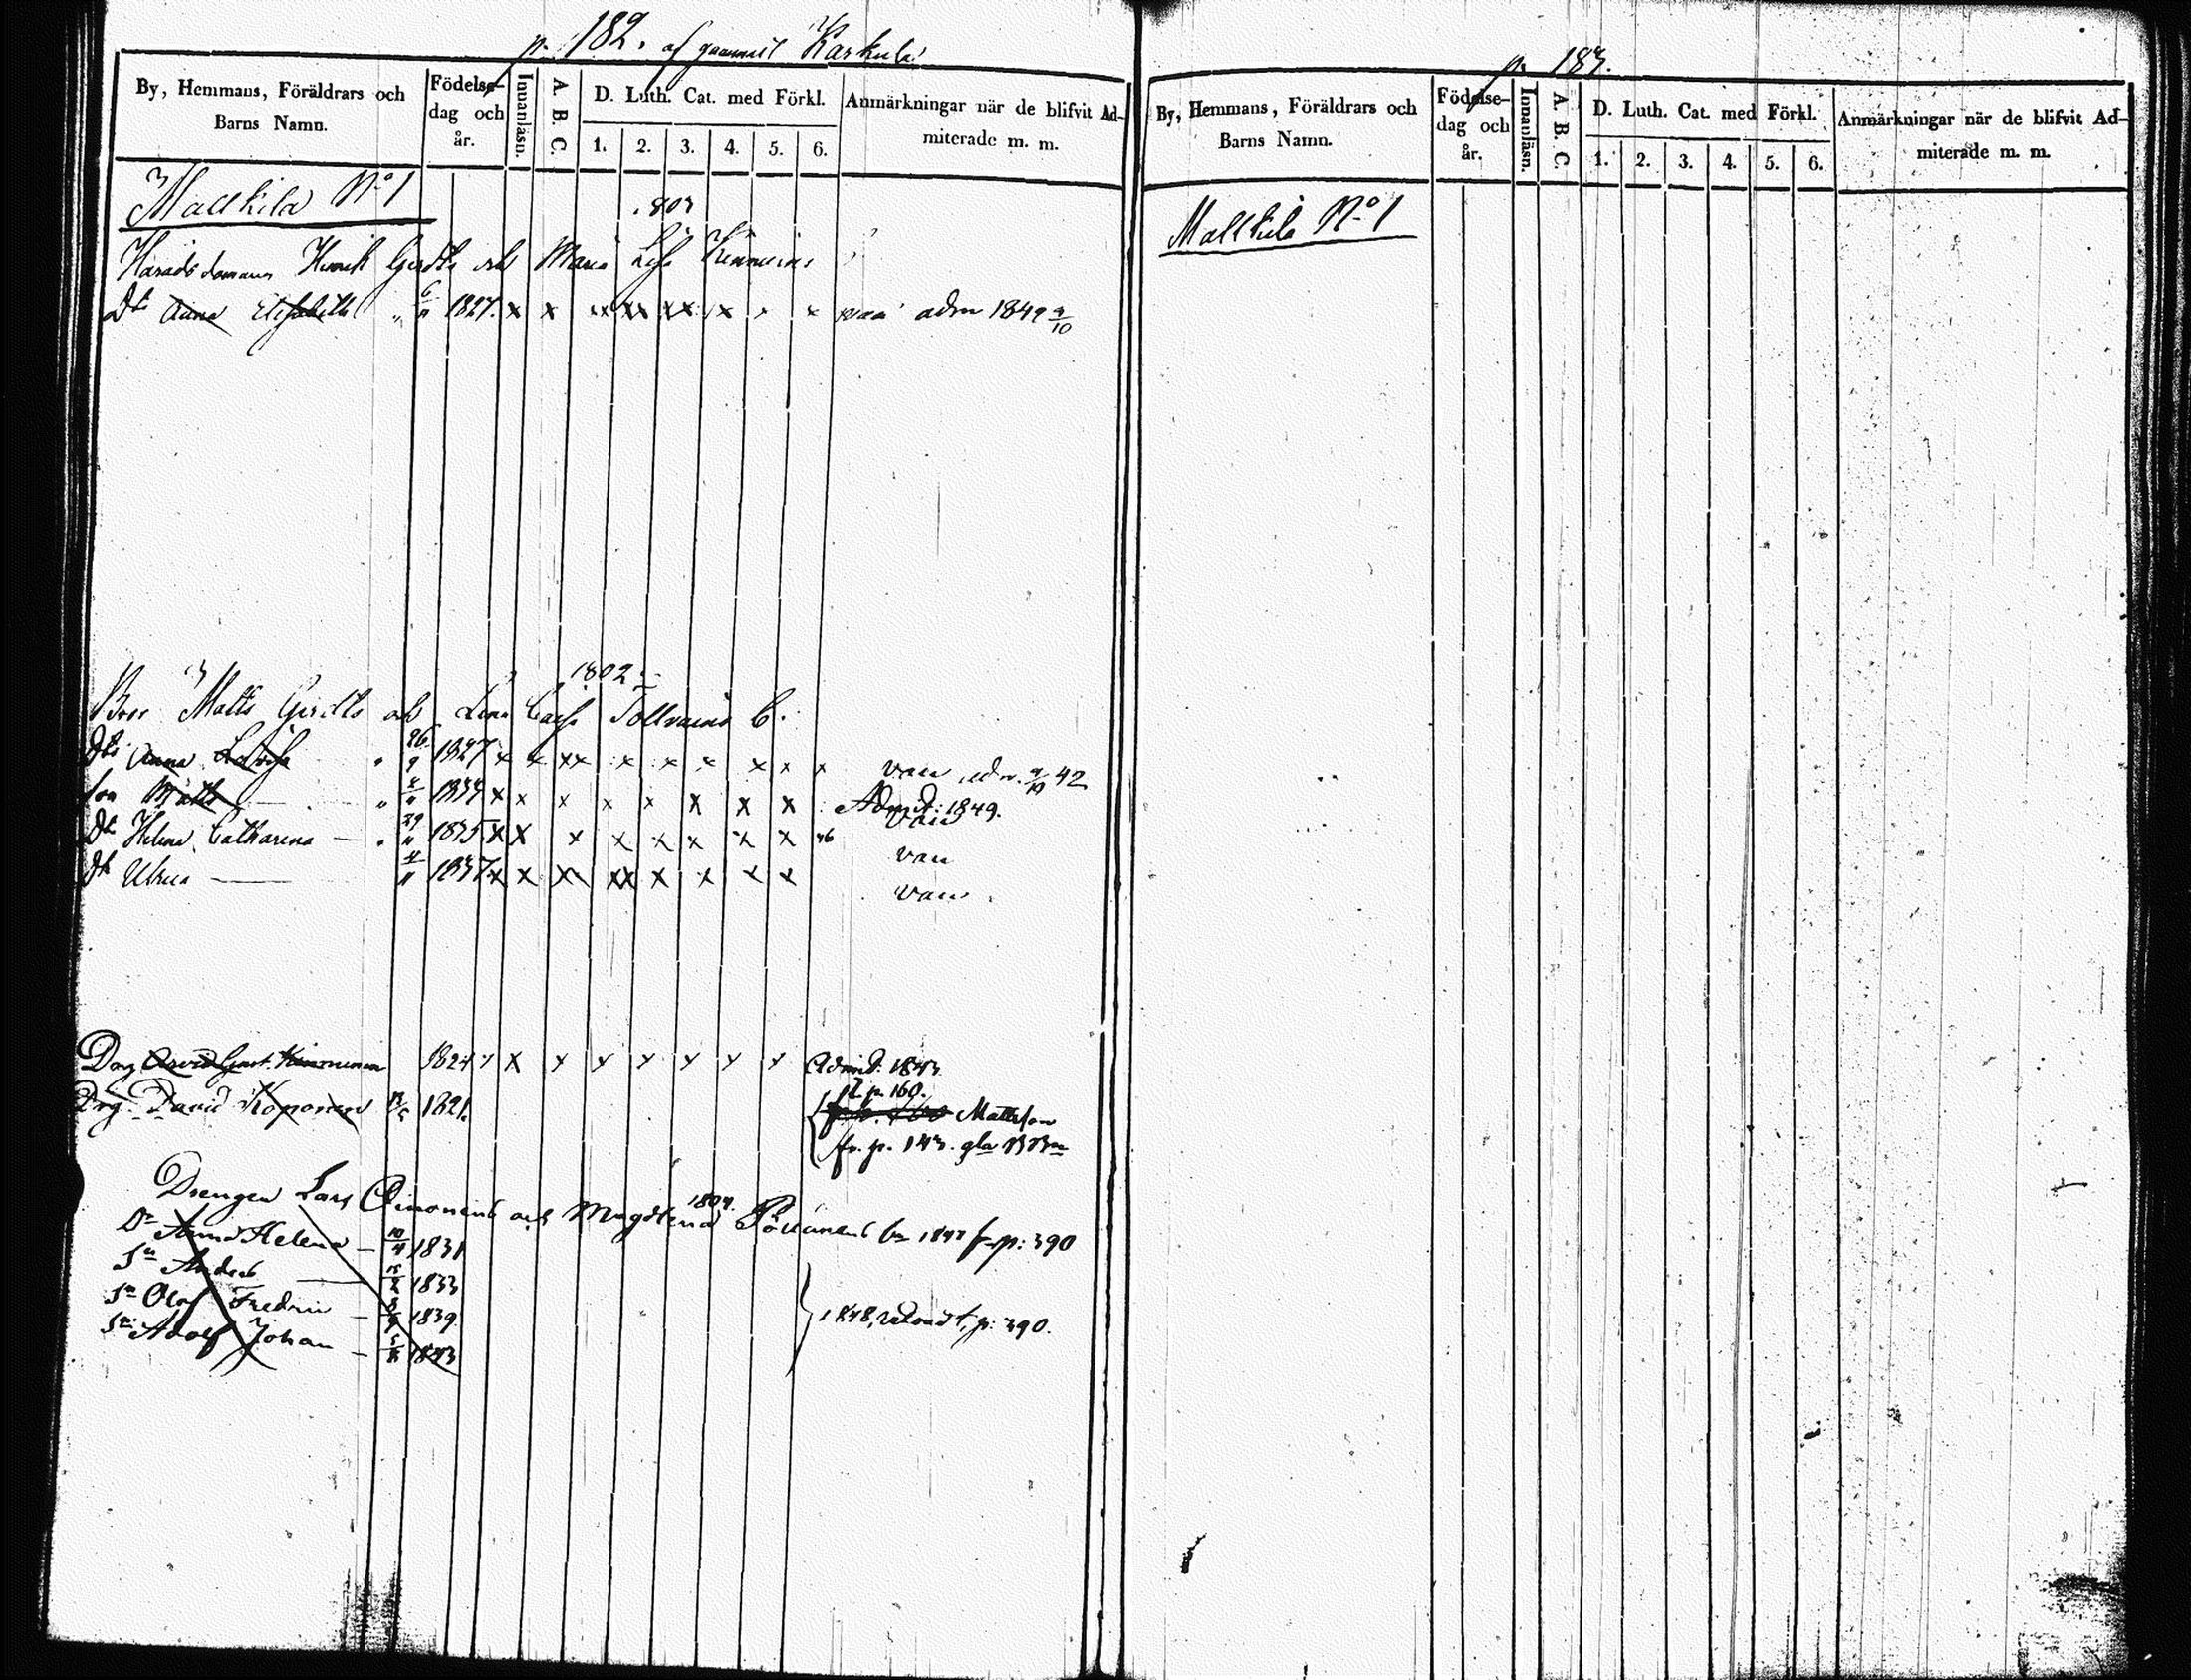 p. 182. af gammal Karkula
By, Hemmans, Föräldrars och Barns Namn.
Födelse-dag och år.
Innanläsn.
A. B. C.
D. Luth. Cat. med Förkl.
1. 2. 3. 4. 5. 6.
Anmärkningar när de blifvit Ad-miterade m. m.
Matkila No 1
Härads domaren Henrik Girdts och Maria Lisa
Dr Anna Elisabeth 1827. x x xx xx xx x x x adm 1842
1802
Matts Girdts och Lena Caisa Tollvainen
Anna Lovisa 26 1827 x x xx x x x x x x van adm. 42
son Matts 1834 x x x x x x x x Admit: 1849.
Dr Helena Catharina — 29 1835 x x x x x x x x 46 van
Dr Ulrica — 1837 x x x xx x x x x van
Drg Arvid Gust. Kinnunen 1824 x x x x x x x x Admit: 1843
Drg. David Koponen 1821.
p. 160.
Mattsson
fr. p. 143.
Drengen Lars och Magdlena 1847 fr p: 390
Dr Anna Helena — 1831
Sn Anders — 1833
Sn Olof Fredric — 1839
Sn Adolf Johan — 1843
1848, p: 390.
p. 183.
By, Hemmans, Föräldrars och Barns Namn.
Födelse-dag och år.
Innanläsn.
A. B. C.
D. Luth. Cat. med Förkl.
1. 2. 3. 4. 5. 6.
Anmärkningar när de blifvit Ad-miterade m. m.
Matkila No 1